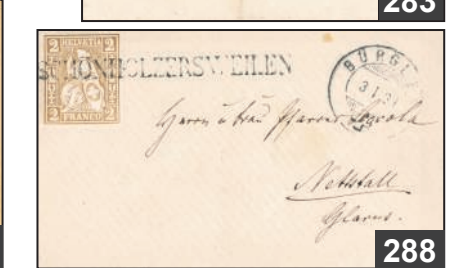 283
HELVETIA
2 2
2 2
FRANCO
SCHÖNHOLZERSWEILEN
BÜRGL
Herrn u Frau Pfarrer
Nettstall
Glarus.
288